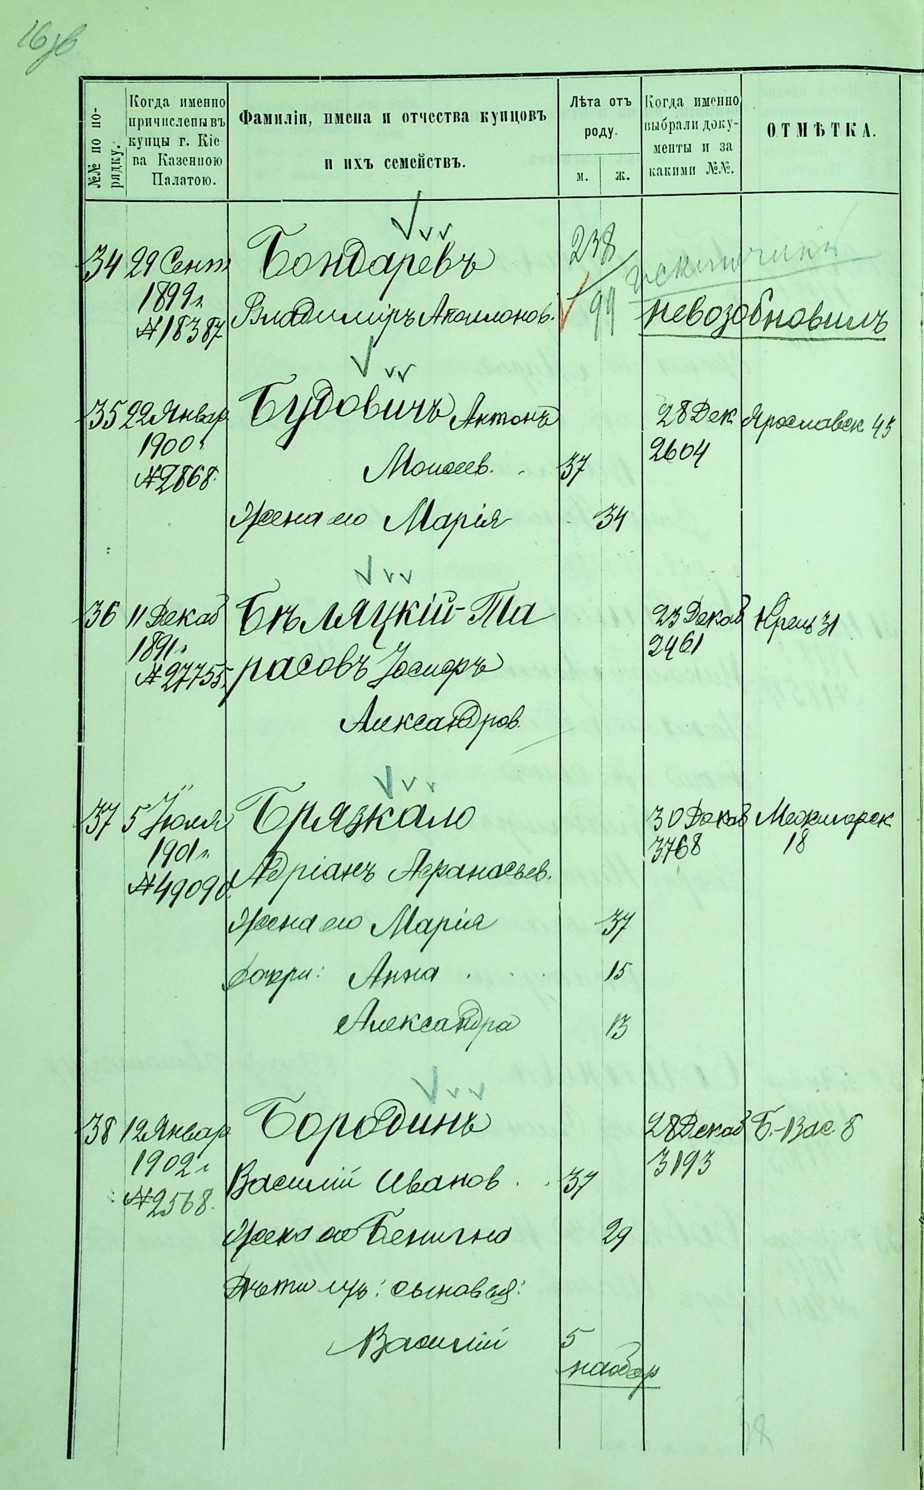 №№ по по-
рядку.
Когда именно
причислены въ
купцы г. Кіе
ва Казенною
Палатою.
Фамиліи, имена и отчества купцовъ
и ихъ семействъ.
Лѣта отъ
роду.
м. ж.
Когда именно
выбрали доку-
менты и за
какими №№.
ОТМѢТКА.
34 29 Сент Бондаревъ 238
1899 г. Владимиръ Аполлонов. 99 невозобновилъ
№ 18387
35 22 Январ Будовичъ Антонъ 28 Дек Ярославск 45
1900 г. Моисеев. 37 2604
№ 2868.
Жена его Марія 34
36 11 Декаб Бѣляцкій-Та 23 Декаб Крещ 31
1891 г. расовъ Іосифъ 2961
№ 27755
Александров
37 5 Іюля Брязкало 30 Декаб Межигорск
1901 г. 3768 18
№ 49090 Адріанъ Афанасьев.
Жена его Марія 37
дочери: Анна 15
Александра 13
38 12 Январ Бородинъ 28 Декаб Б.-Вас. 8
1902 г. Василій Иванов 37 3193
№ 2568.
Жена его Бенигна 29
Дѣти ихъ: сыновья:
Василій 5
наобор